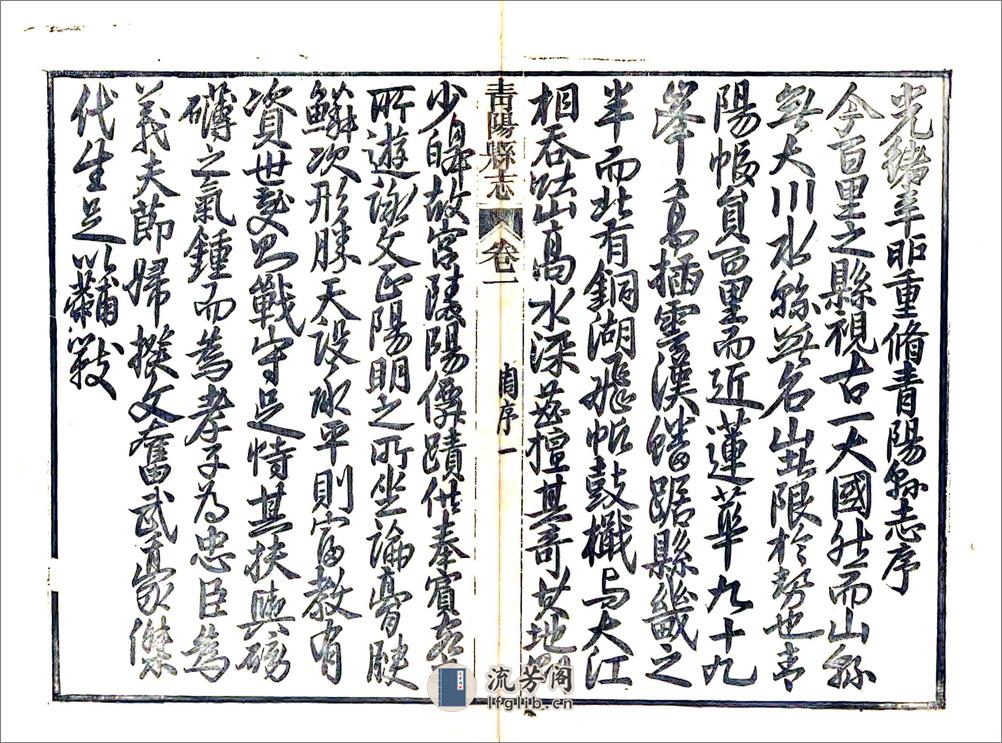 光緒辛卯重脩青陽縣志序
今百里之縣視古一大國然而山縣
無大川水縣無名山限於勢也青
陽幅員百里而近蓮華九十九
峯高插雲漢蟠踞縣畿之
半而北有銅湖飛帆鼓檝与大江
相吞吐山高水深茲擅其奇其地
青陽縣志 卷一 周序 一
少皞故宮陵陽僊蹟供奉賓客
所遊詠文正陽明之所坐論膏腴
鱗次形勝天設承平則富教有
資世變則戰守足恃其扶輿磅
礴之氣鍾而為孝子為忠臣為
義夫節婦揆文奮武豪傑
代生足以黼黻
流芳阁
lfglib.cn